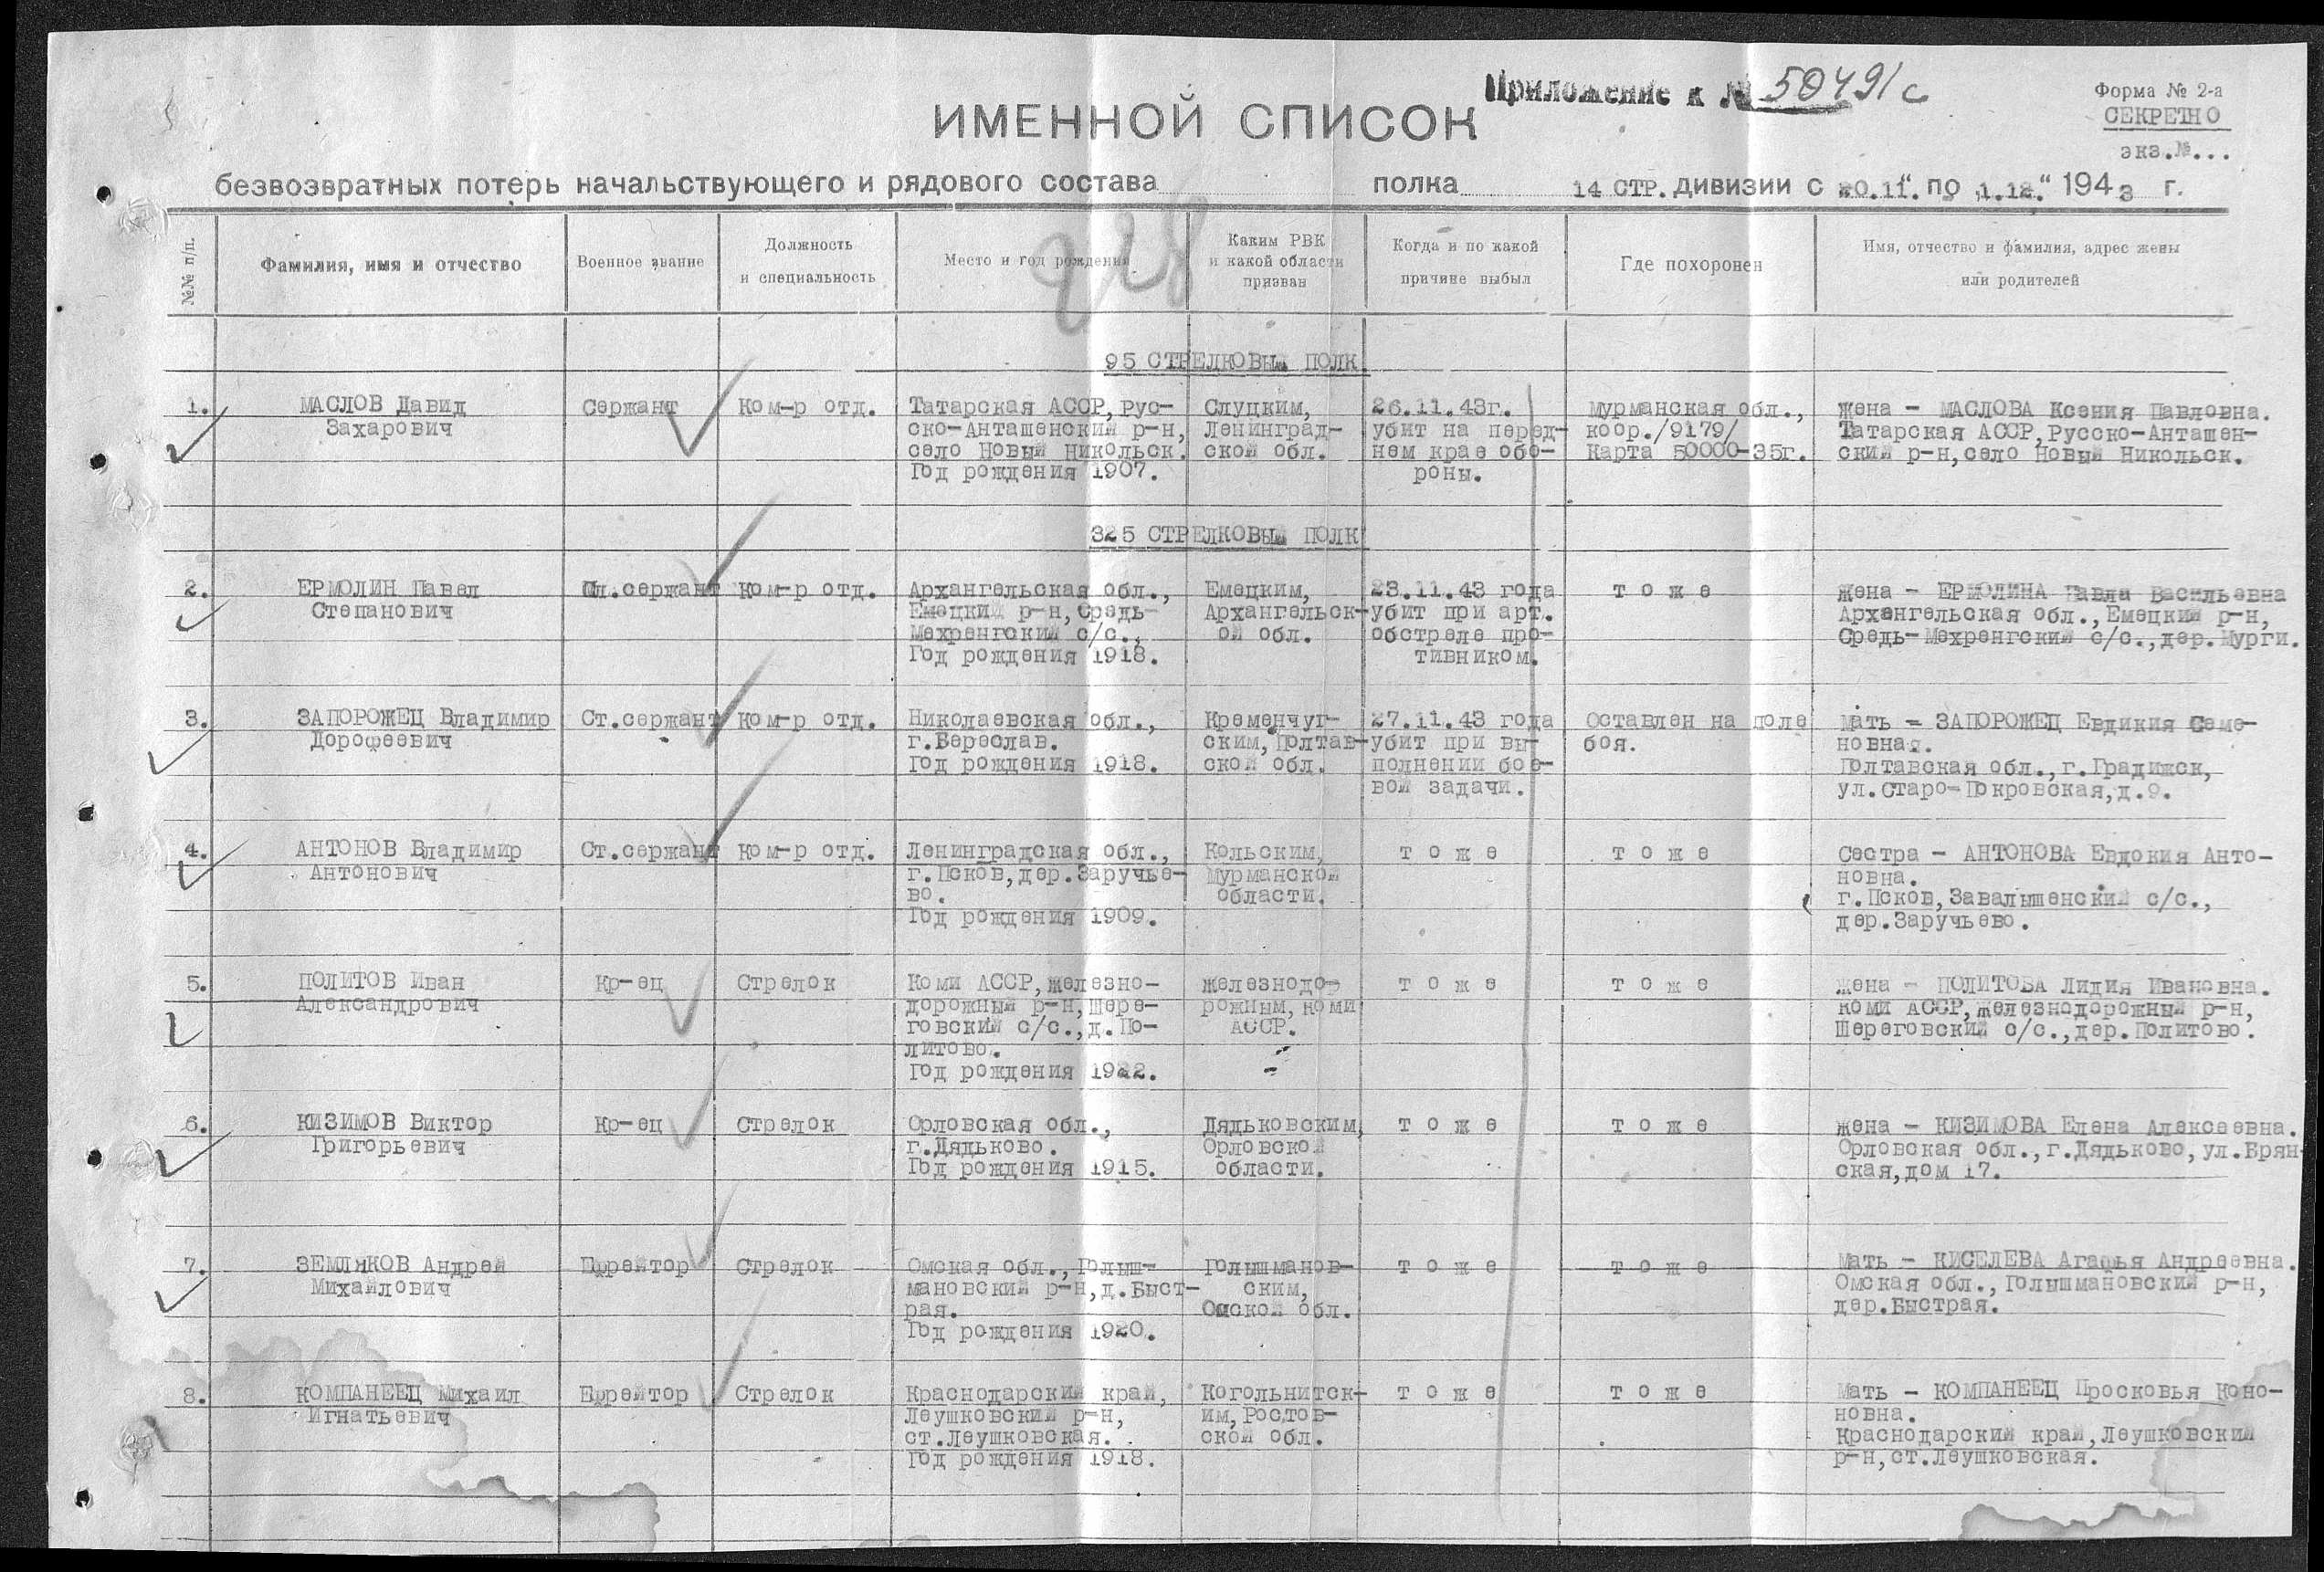 Приложение к № 50491с
Форма № 2-а
СЕКРЕТНО
экз.№...
ИМЕННОЙ СПИСОК
безвозвратных потерь начальствующего и рядового состава полка 14 СТР. дивизии с 20.11." по „1.12." 1943 г.
№№ п/п.
Фамилия, имя и отчество
Военное звание
Должность
и специальность
Место и год рождения
Каким РВК
и какой области
призван
Когда и по какой
причине выбыл
Где похоронен
Имя, отчество и фамилия, адрес жены
или родителей
228
95 СТРЕЛКОВЫЙ ПОЛК
1.
МАСЛОВ Давид
Захарович
Сержант
Ком-р отд.
Татарская АССР, Рус-
ско-Анташенский р-н,
село Новый Никольск.
Год рождения 1907.
Слуцким,
Ленинград-
ской обл.
26.11.43г.
убит на перед-
нем крае обо-
роны.
Мурманская обл.,
коор./9179/
Карта 50000-35г.
Жена - МАСЛОВА Ксения Павловна.
Татарская АССР, Русско-Анташен-
ский р-н, село Новый Никольск.
325 СТРЕЛКОВЫЙ ПОЛК
2.
ЕРМОЛИН Павел
Степанович
Мл.сержант
Ком-р отд.
Архангельская обл.,
Емецкий р-н, Средь-
Мехренгский с/с.,
Год рождения 1918.
Емецким,
Архангельск-
ой обл.
23.11.43 года
убит при арт.
обстреле про-
тивником.
т о ж е
Жена - ЕРМОЛИНА Павла Васильевна
Архангельская обл., Емецкий р-н,
Средь-Мехренгский с/с., дер. Мурги.
3.
ЗАПОРОЖЕЦ Владимир
Дорофеевич
Ст.сержант
Ком-р отд.
Николаевская обл.,
г.Береслав.
Год рождения 1918.
Кременчуг-
ским, Полтав-
ской обл.
27.11.43 года
убит при вы-
полнении бое-
вой задачи.
Оставлен на поле
боя.
Мать - ЗАПОРОЖЕЦ Евдикия Семе-
новная.
Полтавская обл., г.Градижск,
ул.Старо-Покровская, д.9.
4.
АНТОНОВ Владимир
Антонович
Ст.сержант
Ком-р отд.
Ленинградская обл.,
г.Псков, дер.Заручье-
во.
Год рождения 1909.
Кольским,
Мурманской
области.
т о ж е
т о ж е
Сестра - АНТОНОВА Евдокия Анто-
новна.
г.Псков, Завалышенский с/с.,
дер.Заручьево.
5.
ПОЛИТОВ Иван
Александрович
Кр-ец
Стрелок
Коми АССР, Железно-
дорожный р-н, Шере-
говский с/с., д.По-
литово.
Год рождения 1922.
Железнодо-
рожным, Коми
АССР.
т о ж е
т о ж е
Жена - ПОЛИТОВА Лидия Ивановна.
Коми АССР, Железнодорожный р-н,
Шереговский с/с., дер.Политово.
6.
КИЗИМОВ Виктор
Григорьевич
Кр-ец
Стрелок
Орловская обл.,
г.Дядьково.
Год рождения 1915.
Дядьковским,
Орловской
области.
т о ж е
т о ж е
Жена - КИЗИМОВА Елена Алексеевна.
Орловская обл., г.Дядьково, ул.Брян-
ская, дом 17.
7.
ЗЕМЛЯКОВ Андрей
Михайлович
Ефрейтор
Стрелок
Омская обл., Голыш-
мановский р-н, д.Быст-
рая.
Год рождения 1920.
Голышманов-
ским,
Омской обл.
т о ж е
т о ж е
Мать - КИСЕЛЕВА Агафья Андреевна.
Омская обл., Голышмановский р-н,
дер.Быстрая.
8.
КОМПАНЕЕЦ Михаил
Игнатьевич
Ефрейтор
Стрелок
Краснодарский край,
Леушковский р-н,
ст.Леушковская.
Год рождения 1918.
Когольнитск-
им, Ростов-
ской обл.
т о ж е
т о ж е
Мать - КОМПАНЕЕЦ Просковья Коно-
новна.
Краснодарский край, Леушковский
р-н, ст.Леушковская.